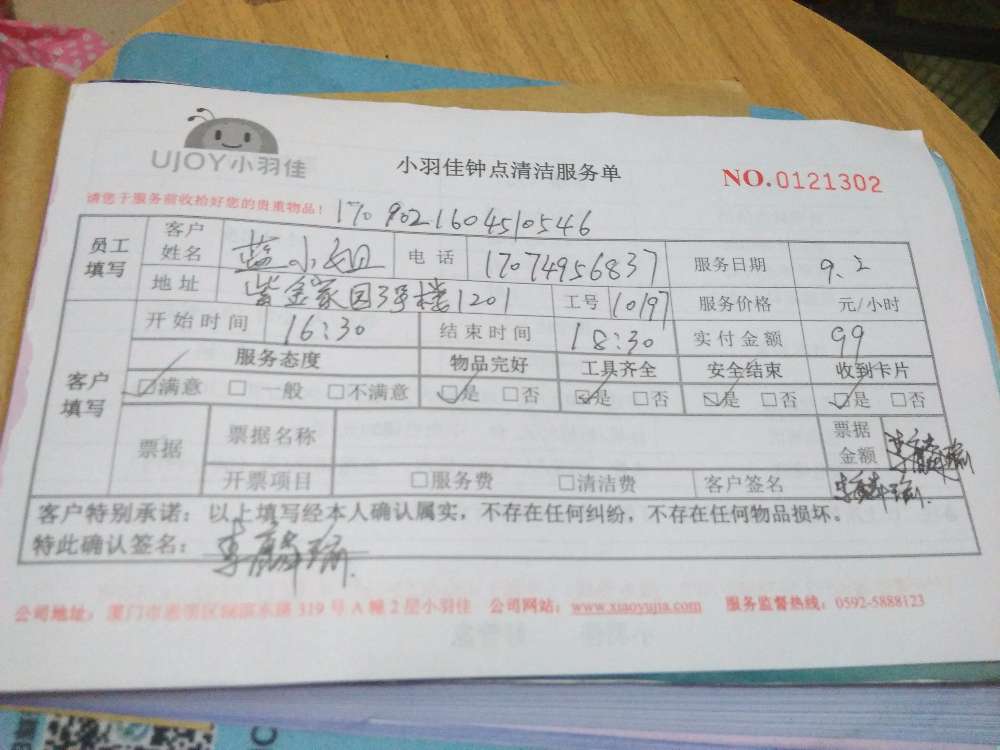 UJOY小羽佳
小羽佳钟点清洁服务单
NO.0121302
请您于服务前收拾好您的贵重物品！
1709021604510546
员工填写 客户姓名 蓝小姐 电话 17074956837 服务日期 9.2
地址 紫金家园3号楼1201 工号 10197 服务价格 元/小时
客户填写 开始时间 16:30 结束时间 18:30 实付金额 99
服务态度 物品完好 工具齐全 安全结束 收到卡片
☑满意 □一般 □不满意 ☑是 □否 ☑是 □否 ☑是 □否 ☑是 □否
票据 票据名称 票据金额
开票项目 □服务费 □清洁费 客户签名
客户特别承诺：以上填写经本人确认属实，不存在任何纠纷，不存在任何物品损坏。
特此确认签名：
公司地址：厦门市思明区 319号A幢2层小羽佳 公司网站：www.xiaoyujia.com 服务监督热线：0592-5888123